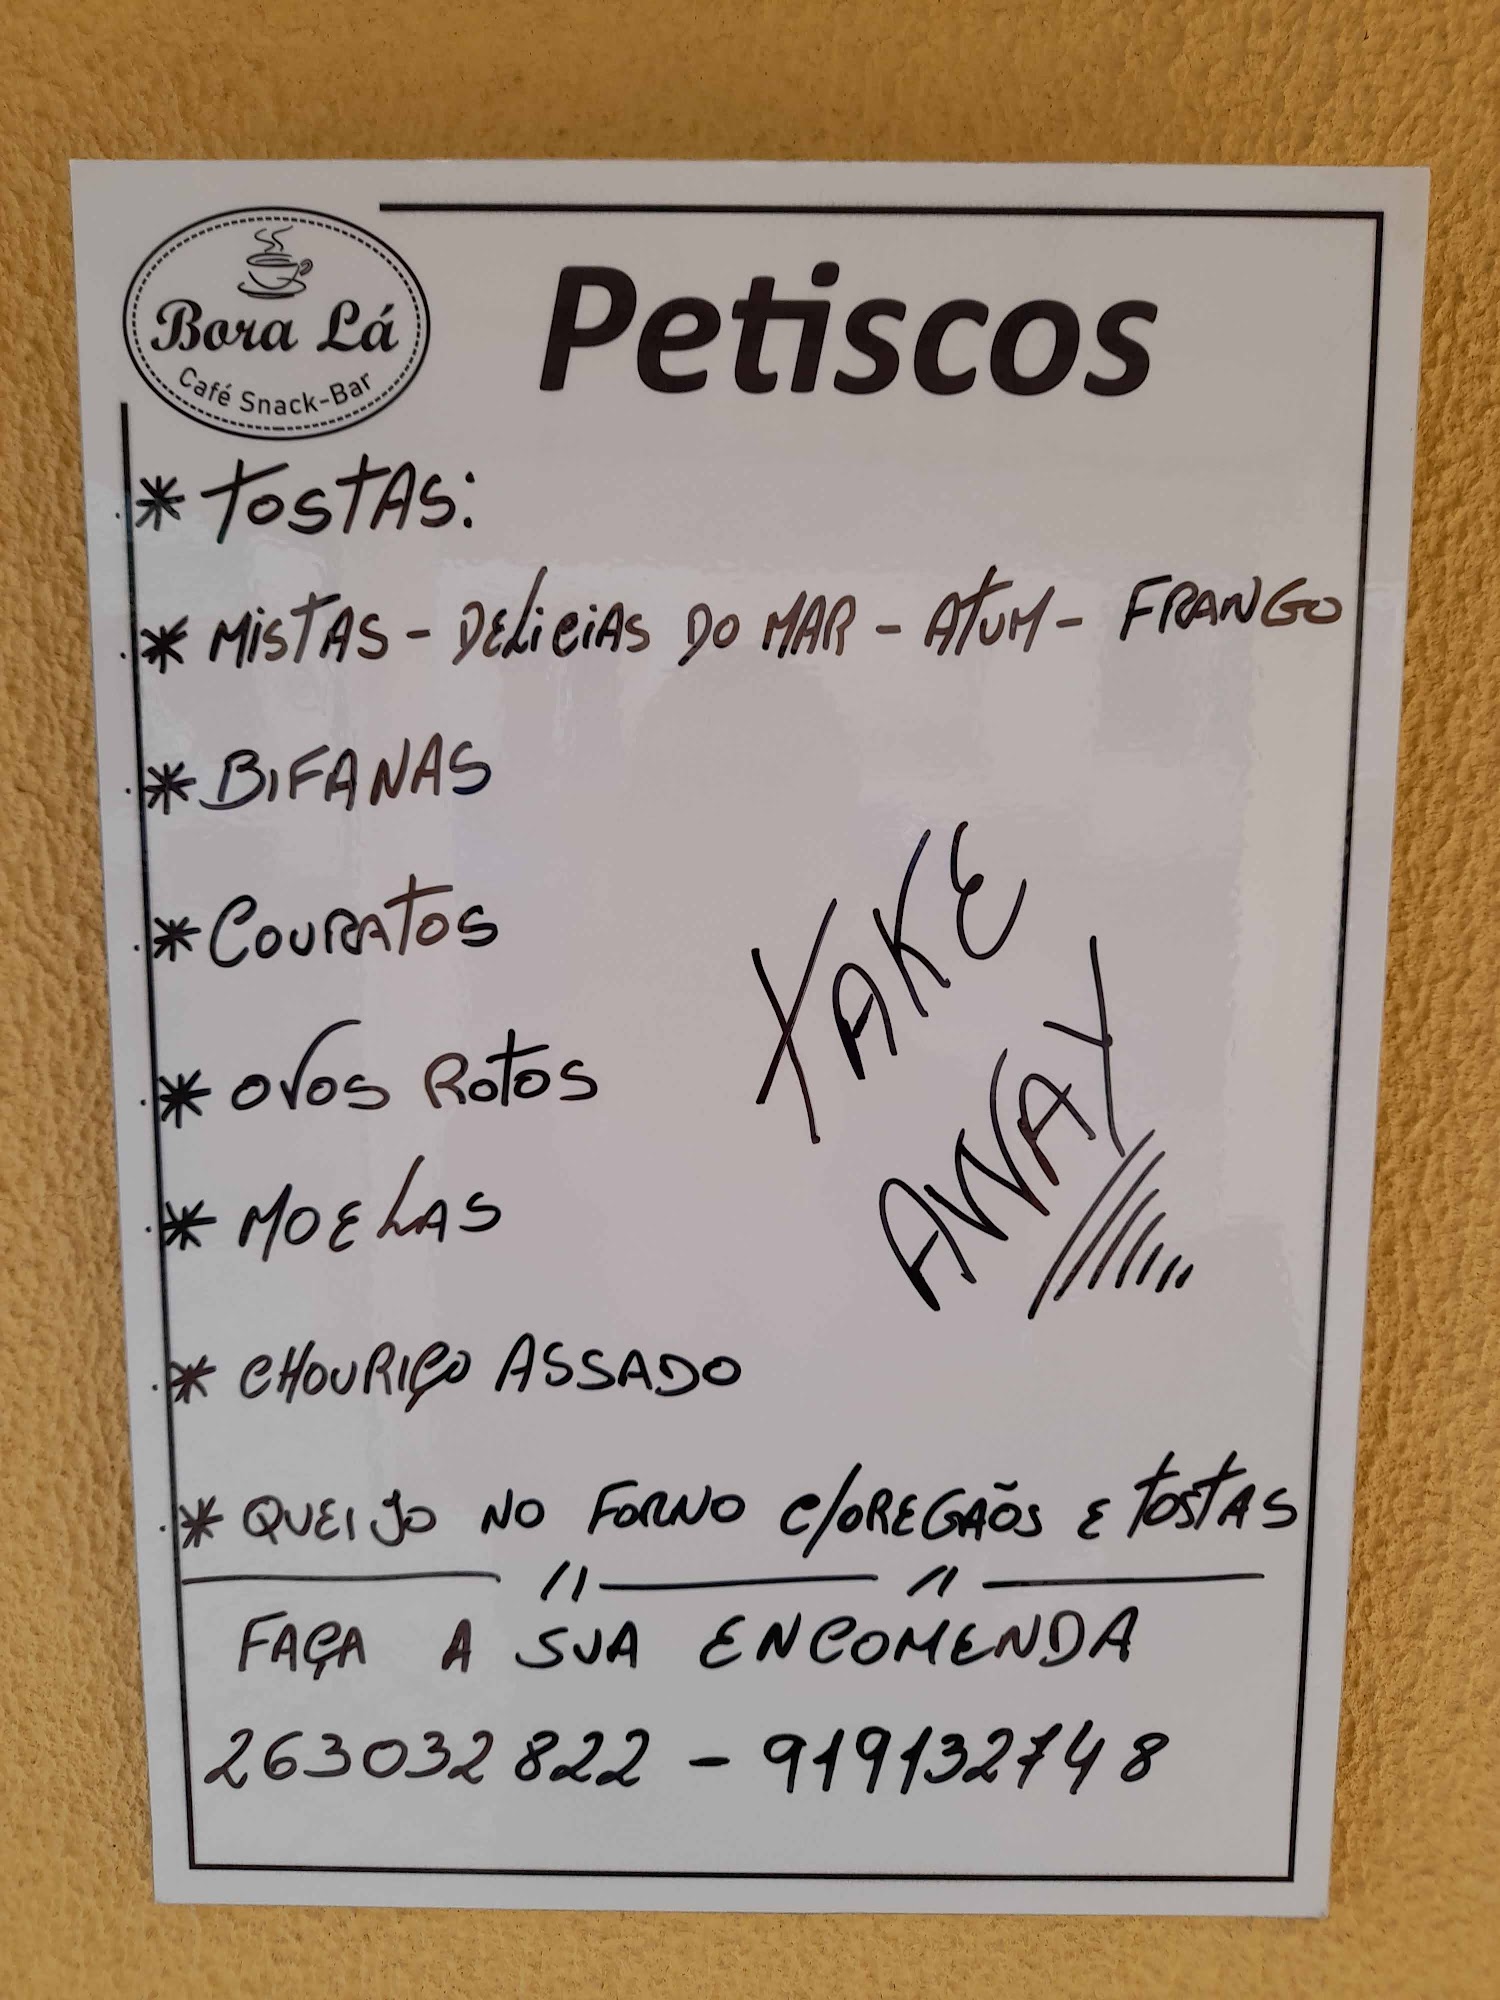 Bora Lá
Café Snack-Bar
Petiscos
* TOSTAS:
* MISTAS - DELICIAS DO MAR - ATUM - FRANGO
* BIFANAS
* COURATOS
* OVOS ROTOS
* MOELAS
* CHOURIÇO ASSADO
* QUEIJO NO FORNO C/OREGÃOS E TOSTAS
TAKE
AWAY
FAÇA A SUA ENCOMENDA
263032822 - 919132748